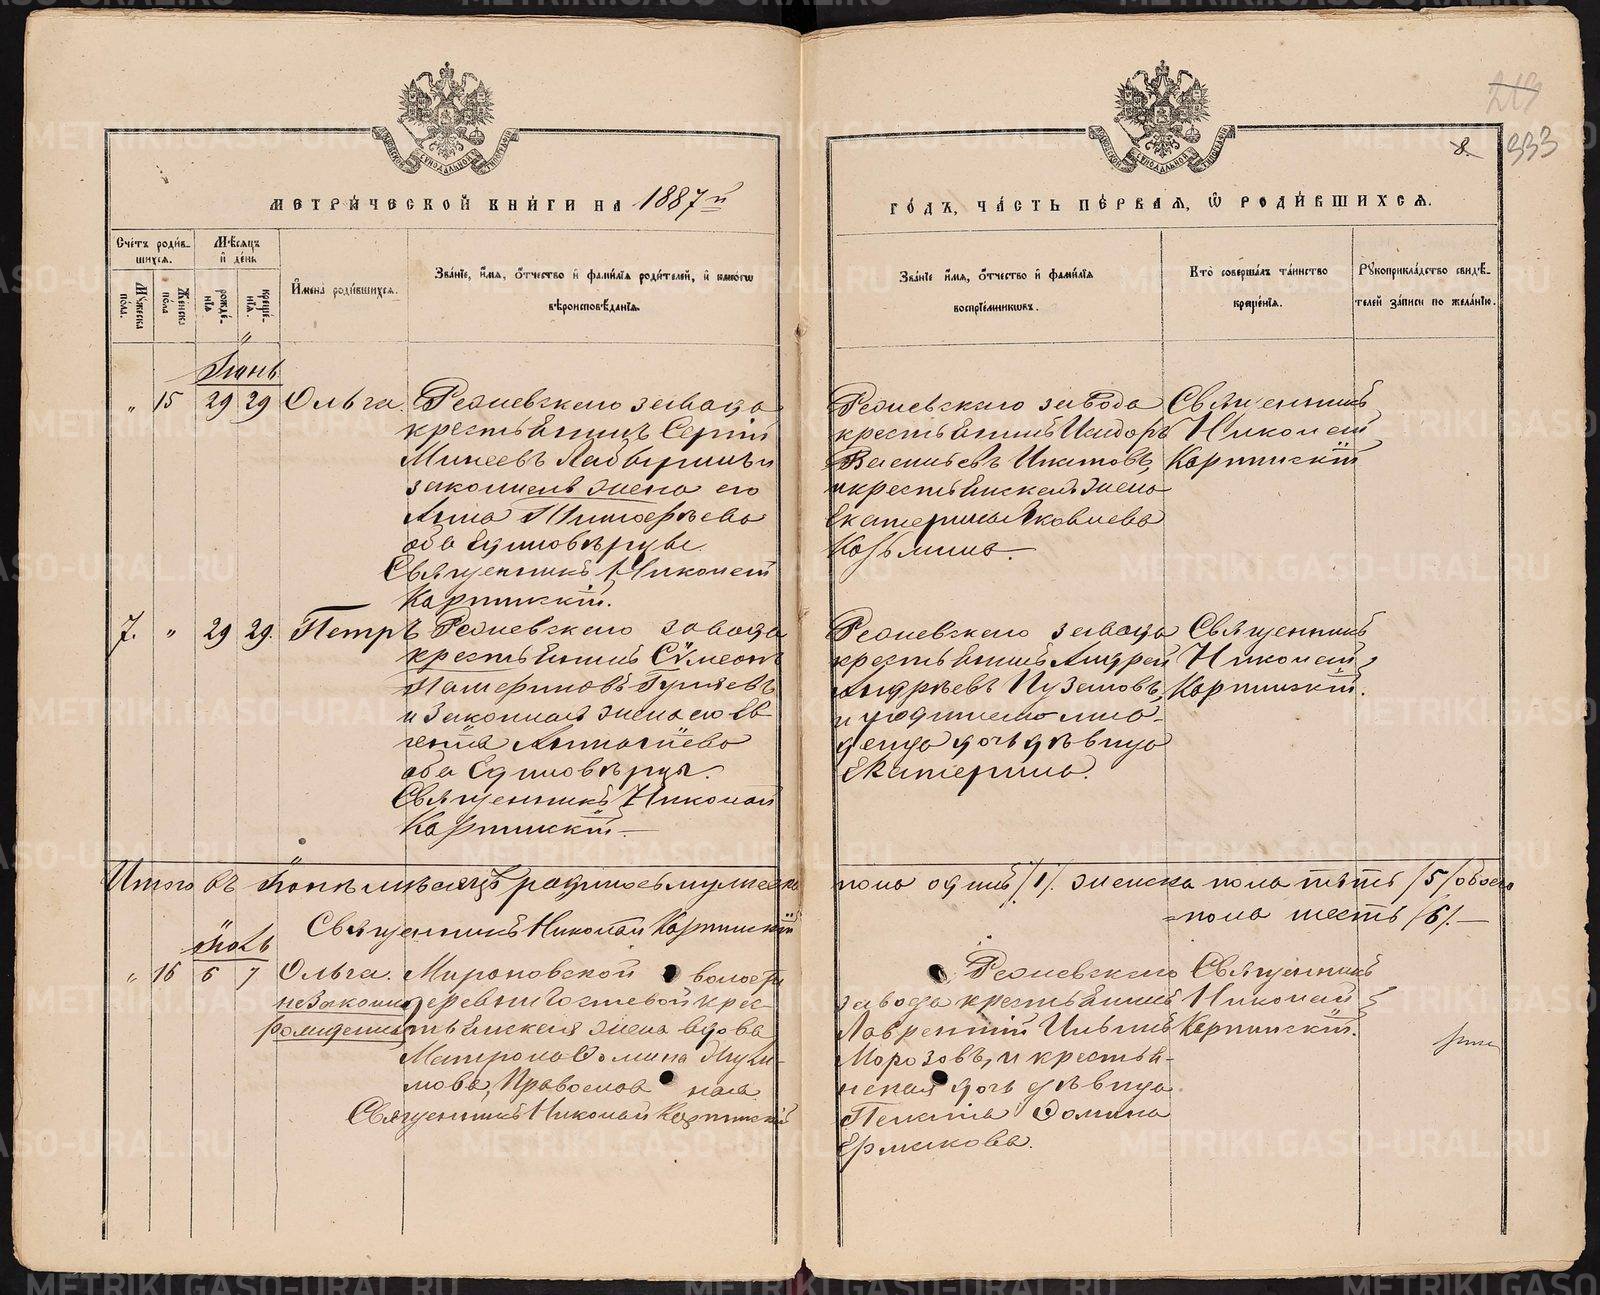 219
8.
333
МЕТРИЧЕСКОЙ КНИГИ НА 1887й
ГОДЪ, ЧАСТЬ ПЕРВАЯ, Ѡ РОДИВШИХСЯ.
Счетъ родившихся.
Мѣсяцъ и день
Мужеска пола.
Женска пола
рожденія
крещенія.
Имена родившихся.
Званіе, имя, отчество и фамилія родителей, и какогѡ
вѣроисповѣданія.
Званіе имя, отчество и фамилія
воспріемникѡвъ.
Кто совершалъ таинство
крещенія.
Рукоприкладство свидѣтелей записи по желанію.
Іюнь
" 15 29 29 Ольга.
Режевскаго завода
крестьянинъ Сергій
Минеевъ
законная жена его
Анна Тимофѣева
оба Единовѣрцы.
Священникъ Николай
Карпинскій.
Режевскаго завода
крестьянинъ Исидоръ
Васильевъ Ипатовъ,
и крестьянская жена
Екатерина Яковлева
Козьмина.—
Священникъ
Николай
Карпинскій
7. " 29 29. Петръ
Режевскаго завода
крестьянинъ Сѵмеонъ
Гуляевъ
и законная жена его Ев-
генія
оба Единовѣрцы.
Священникъ Николай
Карпинскій—
Режевскаго завода
крестьянинъ Андрей
Андреевъ Пузановъ,
и родителю мла-
денца дочь дѣвица
Екатерина.
Священникъ
Николай
Карпинскій.
Итого въ Іюнѣ мѣсяцѣ родилось мужеска
пола одинъ /1/. женска пола пять /5/ обоего
пола шесть /6/.—
Священникъ Николай Карпинскій
Іюль
" 16 6 7 Ольга.
незаконно
рожденна
Мироновской волости
деревни Гостевой крес-
тьянская жена вдова
Матрона Ѳомина
Православная
Священникъ Николай Карпинскій
Режевскаго
завода крестьянинъ
Лаврентій Ильинъ
Морозовъ, и крестья-
нская дочь дѣвица
Пелагія Ѳомина
Ермакова.
Священникъ
Николай
Карпинскій.
METRIKI.GASO-URAL.RU